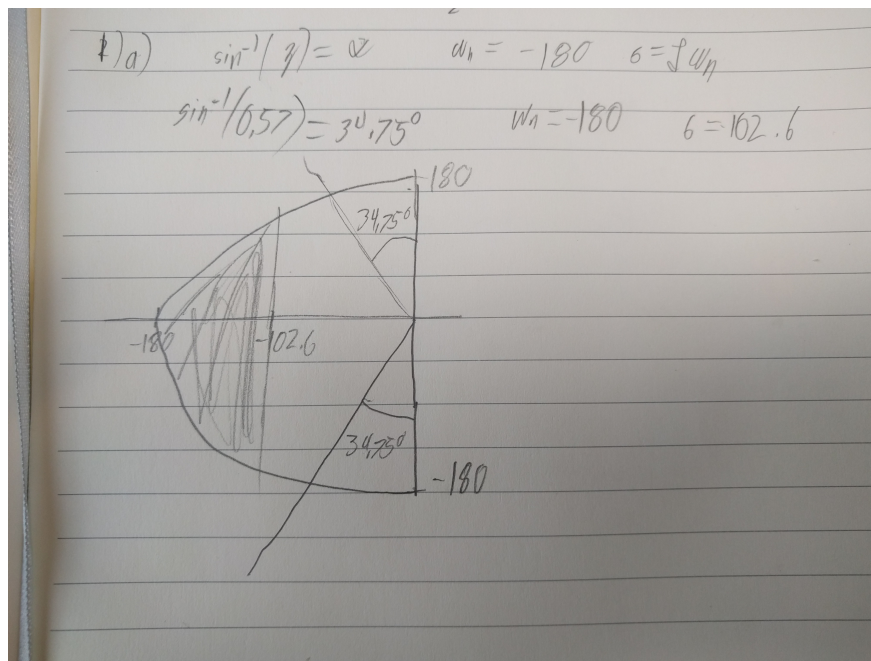 1) a) sin⁻¹(ζ) = α ωn = -180 σ = ζωn
sin⁻¹(0,57) = 34,75° ωn = -180 σ = -102.6
180
34,75°
-180 -102.6
34,75°
-180